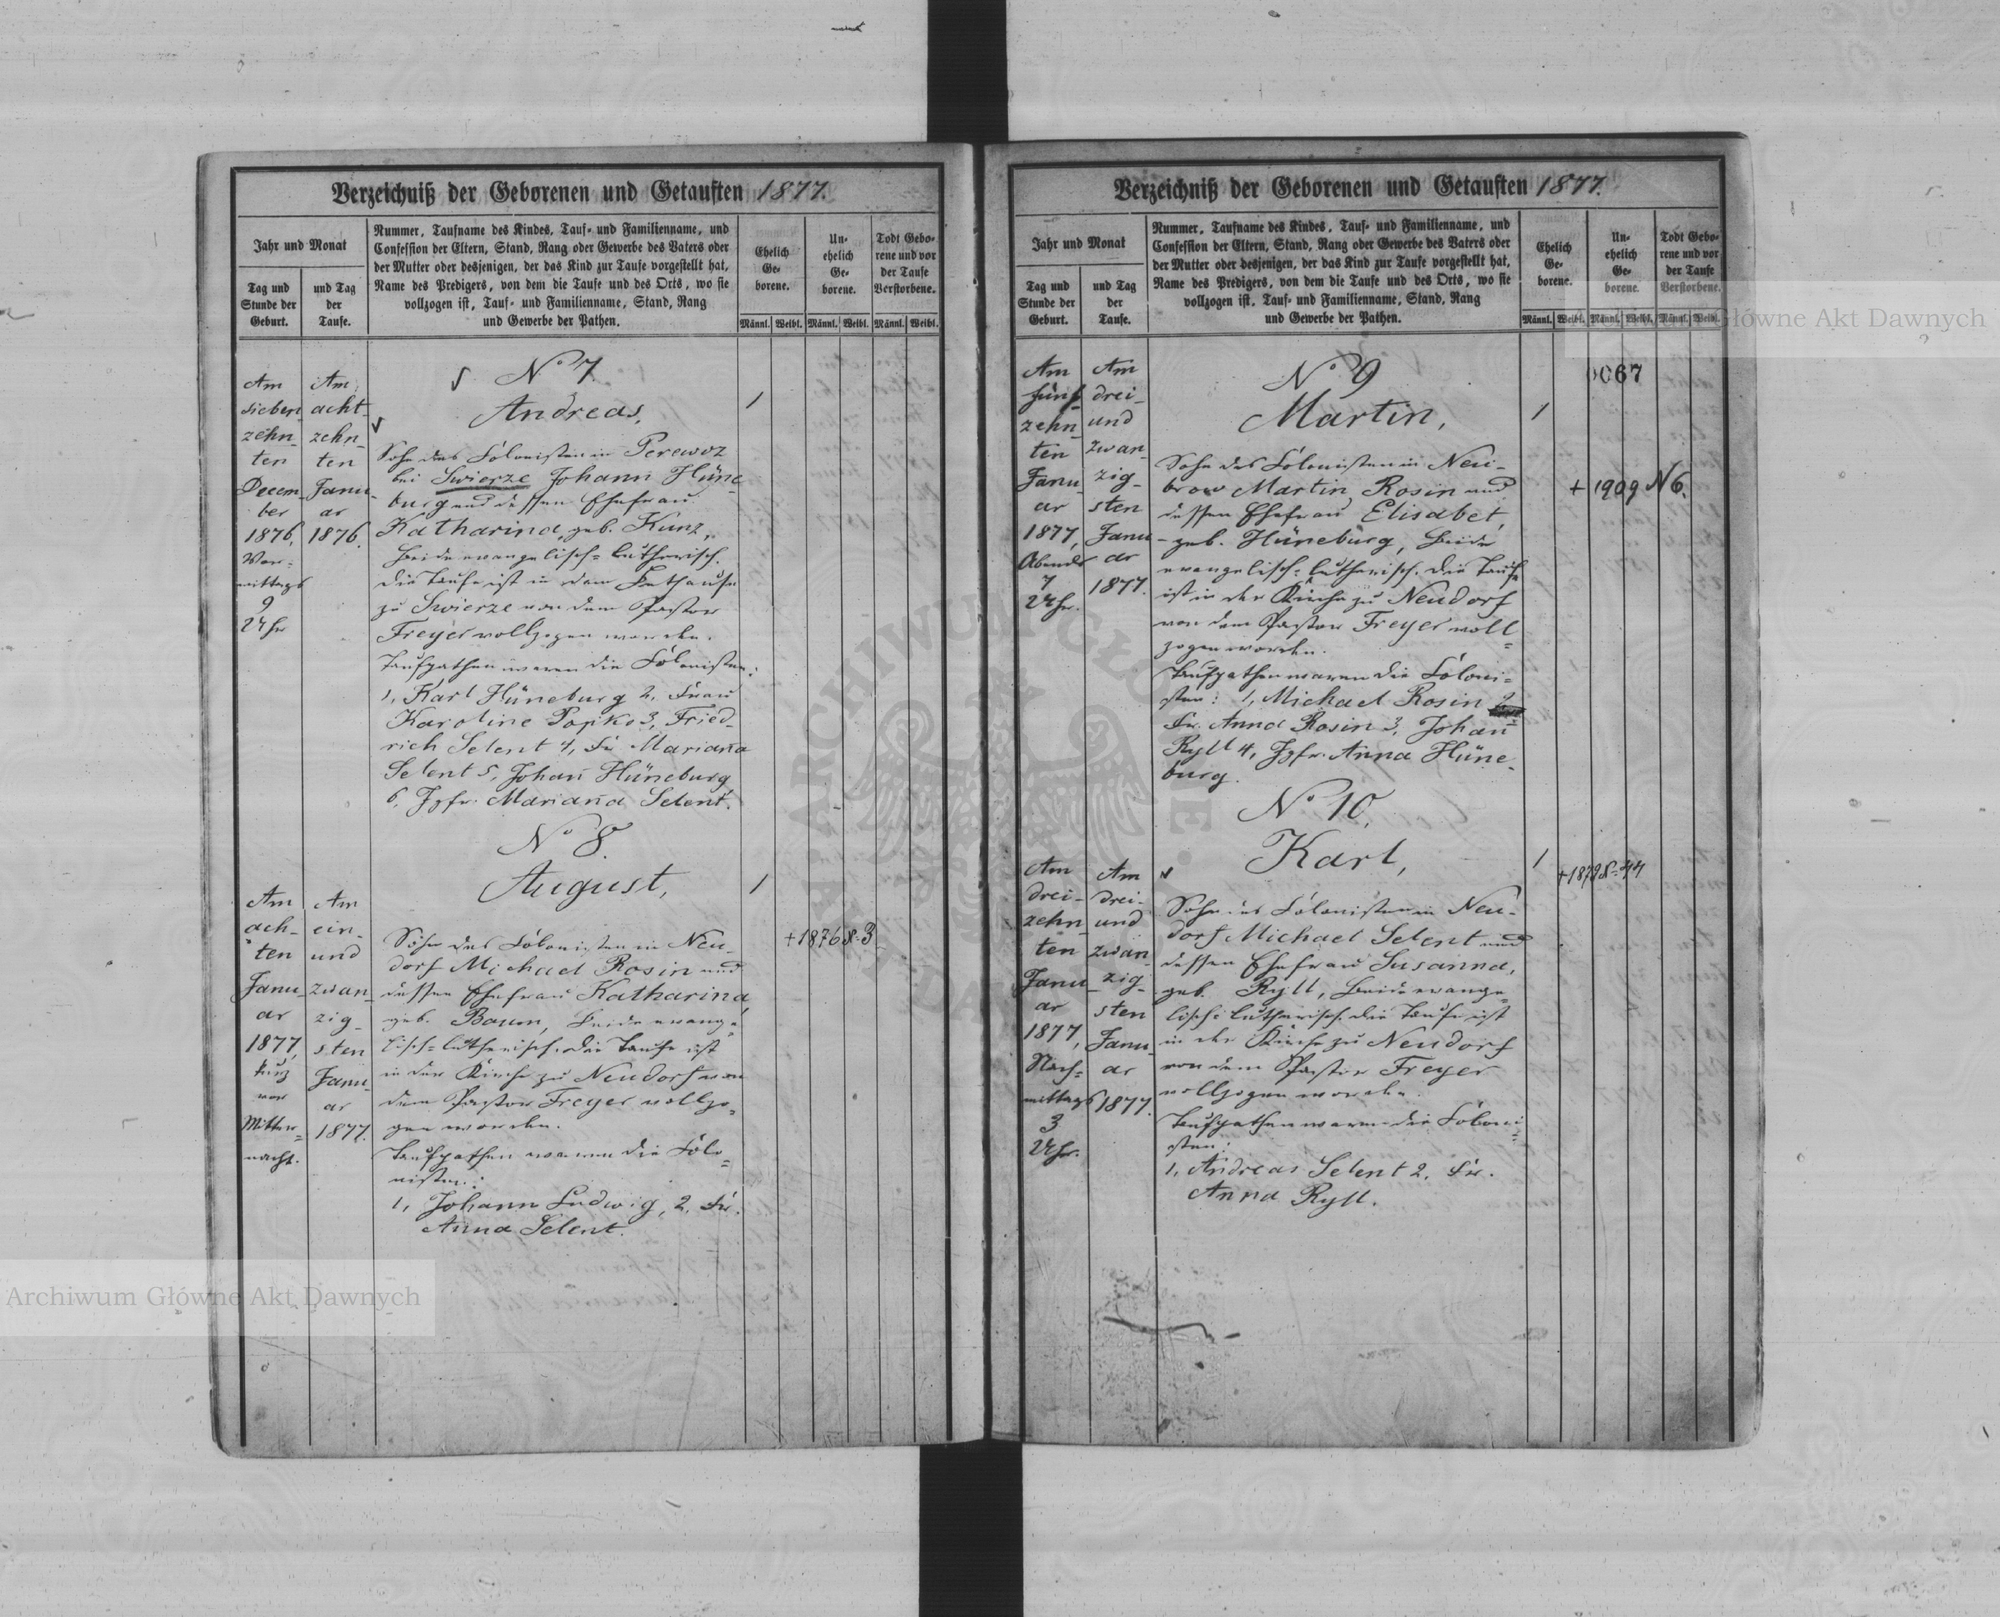 Verzeichniß der Geborenen und Getauften 1877.
Jahr und Monat
Tag und
Stunde der
Geburt.
und Tag
der
Taufe.
Nummer, Taufname des Kindes, Tauf- und Familienname, und
Confession der Eltern, Stand, Rang oder Gewerbe des Vaters oder
der Mutter oder desjenigen, der das Kind zur Taufe vorgestellt hat,
Name des Predigers, von dem die Taufe und des Orts, wo sie
vollzogen ist, Tauf- und Familienname, Stand, Rang
und Gewerbe der Pathen.
Ehelich
Ge-
borene.
Un-
ehelich
Ge-
borene.
Todt Gebo-
rene und vor
der Taufe
Verstorbene.
Männl. Weibl. Männl. Weibl. Männl. Weibl.
Am
sieben
zehn-
ten
Decem-
ber
1876,
Vor-
mittags
9
Uhr
Am
acht-
zehn-
ten
Janu-
ar
1876.
No 7
Andreas,
1
Sohn des Colonisten in Perewoz
bei Swierze Johann Hüne-
burg und dessen Ehefrau
Katharina, geb. Kunz,
Beide evangelisch-lutherisch.
Die Taufe ist in dem Bethause
zu Swierze von dem Pastor
Freyer vollzogen worden.
Taufpathen waren die Colonisten:
1, Karl Hüneburg 2, Frau
Karoline Popko 3, Fried-
rich Selent 4, Fr. Mariana
Selent 5, Johan̄ Hüneburg
6, Jgfr. Mariana Selent.
No 8.
August,
1
Am
ach-
ten
Janu-
ar
1877,
kurz
vor
Mitter-
nacht.
Am
ein-
und
zwan-
zig-
sten
Janu-
ar
1877.
Sohn des Colonisten in Neu-
dorf Michael Rosin und
dessen Ehefrau Katharina,
geb. Baum, Beide evange-
lisch-lutherisch. Die Taufe ist
in der Kirche zu Neudorf von
dem Pastor Freyer vollzo-
gen worden.
Taufpathen waren die Colo-
nisten:
1, Johann Ludwig, 2, Fr.
Anna Selent.
+ 1876 8-3
Verzeichniß der Geborenen und Getauften 1877.
Jahr und Monat
Tag und
Stunde der
Geburt.
und Tag
der
Taufe.
Nummer, Taufname des Kindes, Tauf- und Familienname, und
Confession der Eltern, Stand, Rang oder Gewerbe des Vaters oder
der Mutter oder desjenigen, der das Kind zur Taufe vorgestellt hat,
Name des Predigers, von dem die Taufe und des Orts, wo sie
vollzogen ist, Tauf- und Familienname, Stand, Rang
und Gewerbe der Pathen.
Ehelich
Ge-
borene.
Un-
ehelich
Ge-
borene.
Todt Gebo-
rene und vor
der Taufe
Verstorbene.
Männl. Weibl. Männl. Weibl. Männl. Weibl.
Am
fünf-
zehn-
ten
Janu-
ar
1877,
Abends
7
Uhr.
Am
drei-
und
zwan-
zig-
sten
Janu-
ar
1877.
No 9
Martin,
1
0067
Sohn des Colonisten in Neu-
brow Martin Rosin und
dessen Ehefrau Elisabet,
geb. Hüneburg, Beide
evangelisch-lutherisch. Die Taufe
ist in der Kirche zu Neudorf
von dem Pastor Freyer voll-
zogen worden.
Taufpathen waren die Coloni-
sten: 1, Michael Rosin 2,
Fr. Anna Rosin 3, Johan̄
Ryll 4, Jgfr. Anna Hüne-
burg.
+ 1909 N6.
No 10,
Karl,
1
Am
drei-
zehn-
ten
Janu-
ar
1877,
Nach-
mittags
3
Uhr.
Am
drei-
und
zwan-
zig-
sten
Janu-
ar
1877.
Sohn des Colonisten in Neu-
dorf Michael Selent und
dessen Ehefrau Susanna,
geb. Ryll, Beide evange-
lisch-lutherisch. Die Taufe ist
in der Kirche zu Neudorf
von dem Pastor Freyer
vollzogen worden.
Taufpathen waren die Coloni-
sten:
1, Andreas Selent 2, Fr.
Anna Ryll.
Główne Akt Dawnych
Archiwum Główne Akt Dawnych